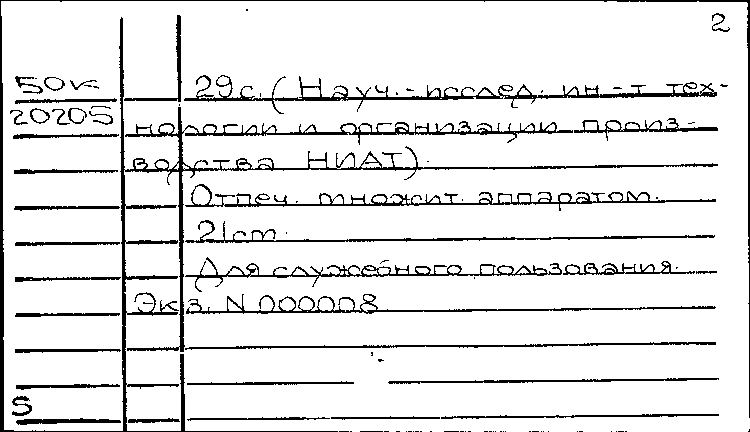 2
50к 29с. (Науч.-исслед. ин-т тех-
20205 нологии и организации произ-
водства НИАТ).
Отпеч. множит. аппаратом.
21см.
Для служебного пользования.
Экз. N 000008
S